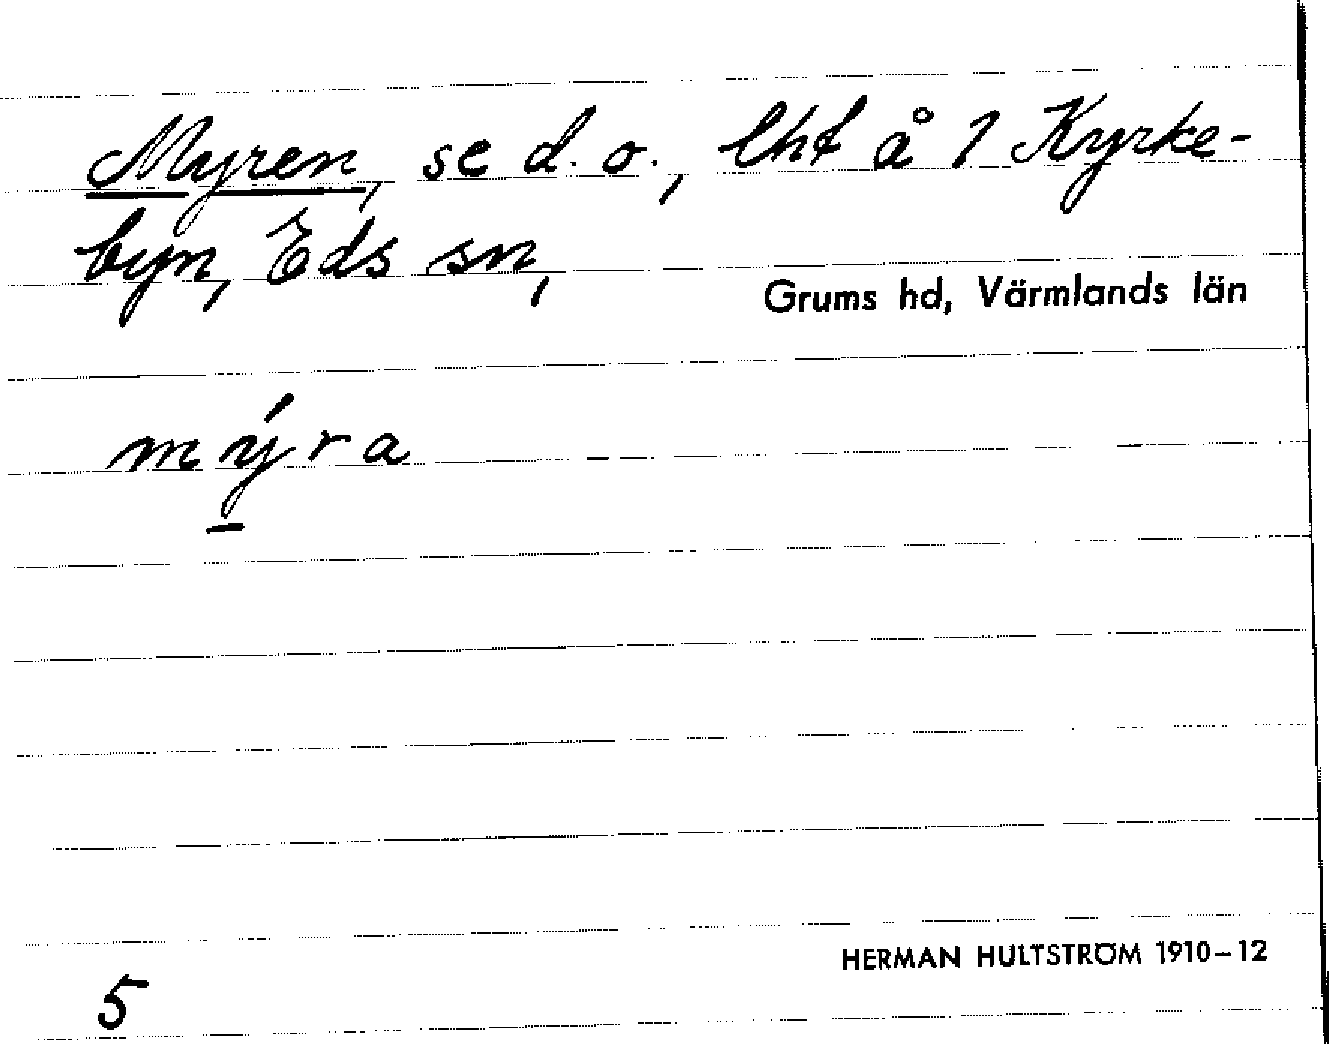 Myren, se d. o., lht å 1 Kyrke-
byn, Eds sn,
Grums hd, Värmlands län
mýra
5
HERMAN HULTSTRÖM 1910–12